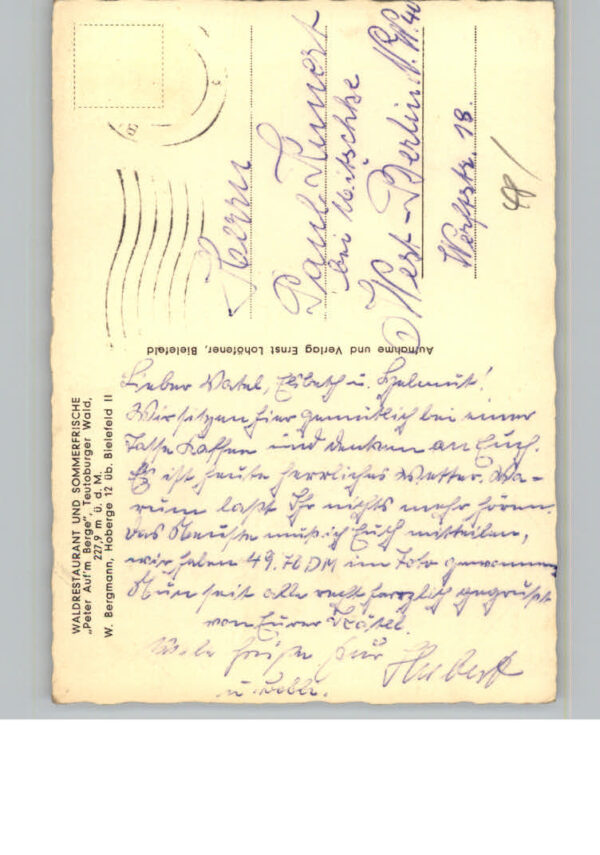 WALDRESTAURANT UND SOMMERFRISCHE
„Peter Auf'm Berge", Teutoburger Wald,
227,9 m ü. d. M.
W. Bergmann, Hoberge 12 üb. Bielefeld II
Lieber Vatel, Elsbeth u. Helmut!
Wir sitzen hier gemütlich bei einer
Tasse Kaffee und denken an Euch.
Es ist heute herrliches Wetter. Wa-
rum laßt Ihr nichts mehr hören.
Das Neuste muß ich Euch mitteilen,
wir haben 49.70 DM im Toto gewonnen
Nun seit alle recht herzlich gegrüßt
von Eurer
Viele Grüße Hubert
Aufnahme und Verlag Ernst Lohöfener, Bielefeld
Herrn
Paul
bei Nitschke
West-Berlin N.W. 40
Werftstr. 18.